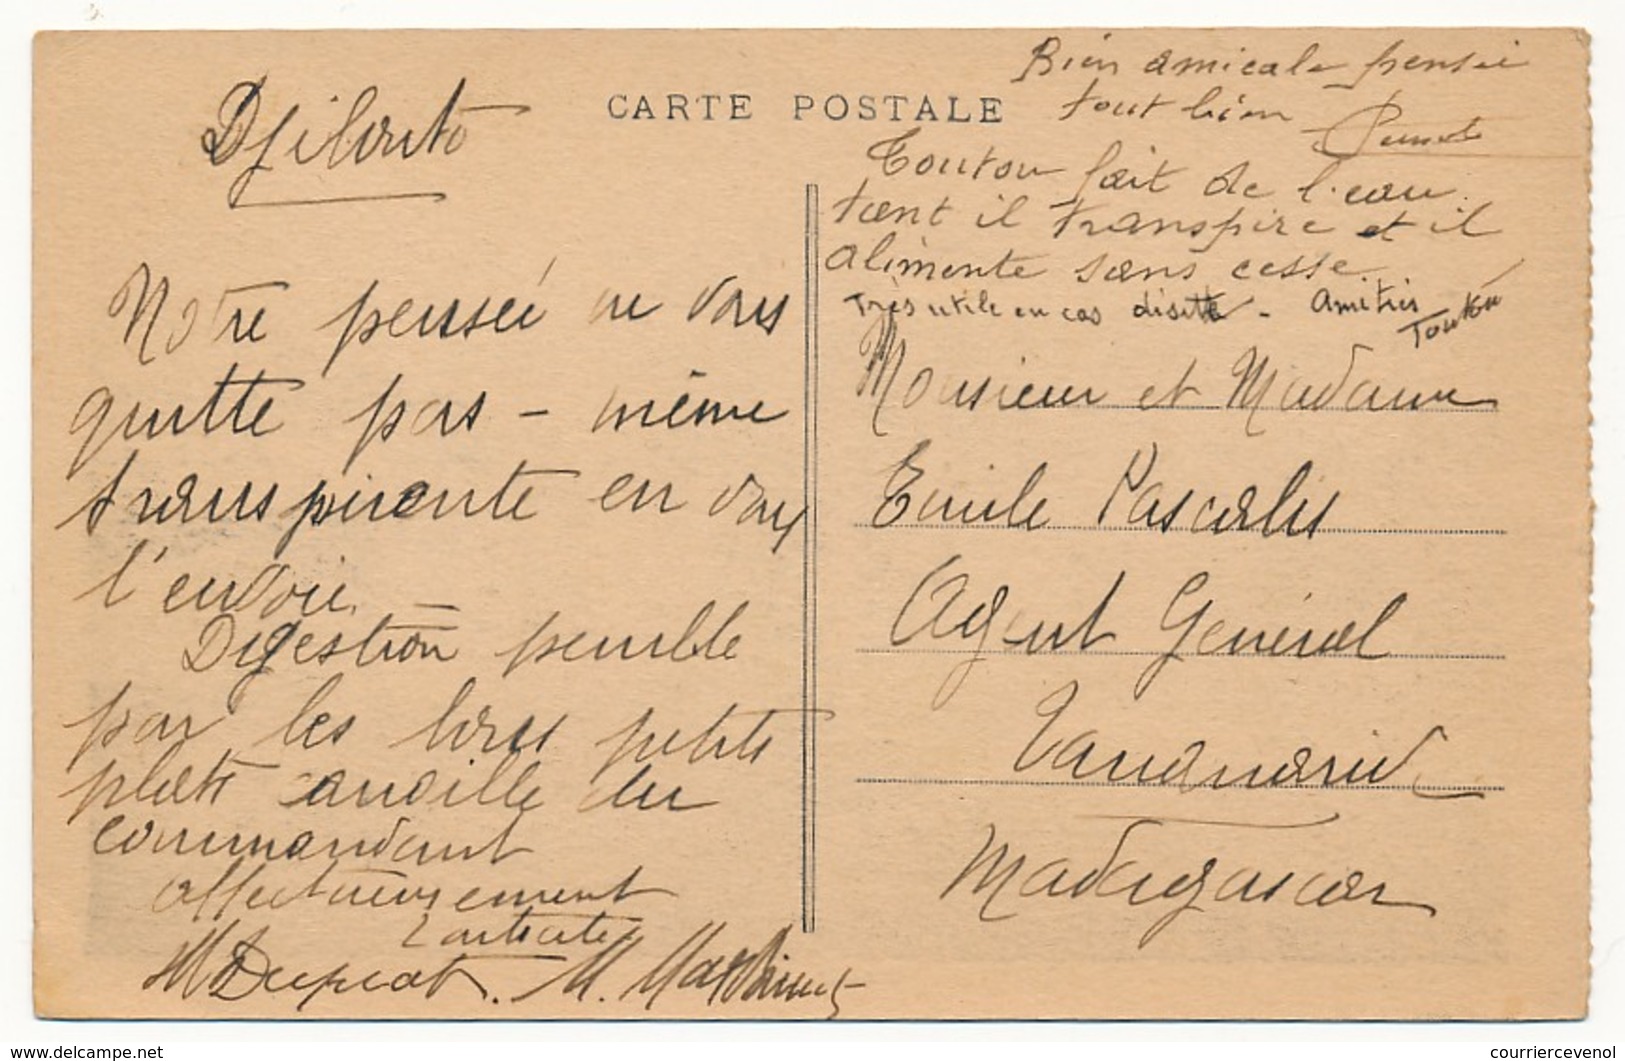 CARTE POSTALE
Notre pensée ne vous
quitte pas - même
transpirante en vous
l'envoie.
Digestion pénible
par les bons petits
plats du
commandant
affectueusement
Bien amicale pensée
tout bien
Toutou fait de l'eau
tant il transpire et il
alimente sans cesse
Très utile en cas disette - Amitiés
Toutou
Monsieur et Madame
Emile Pascalis
Agent Général
Tananarive
Madagascar
www.delcampe.net
courriercevenol